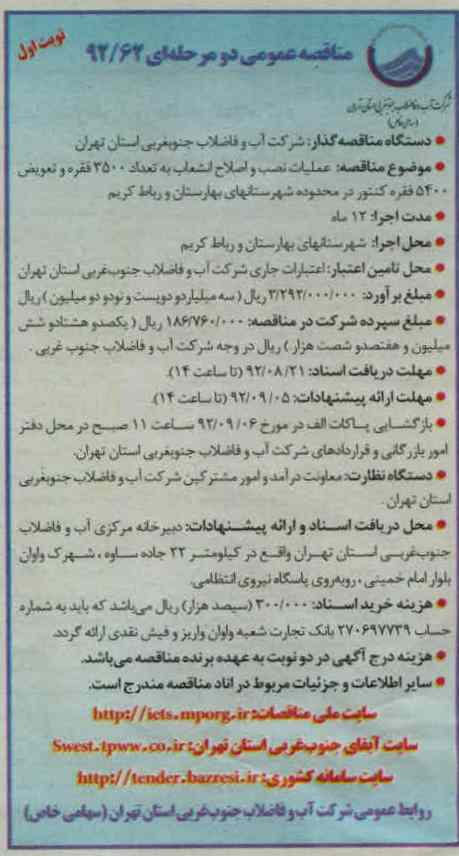 نوبت اول
مناقصه عمومی دو مرحله‌ای ۹۲/۶۲
شرکت آب و فاضلاب جنوبغربی استان تهران
(سهامی خاص)
● دستگاه مناقصه گذار: شرکت آب و فاضلاب جنوبغربی استان تهران
● موضوع مناقصه: عملیات نصب و اصلاح انشعاب به تعداد ۳۵۰۰ فقره و تعویض
۵۴۰۰ فقره کنتور در محدوده شهرستانهای بهارستان و رباط کریم
● مدت اجرا: ۱۲ ماه
● محل اجرا: شهرستانهای بهارستان و رباط کریم
● محل تامین اعتبار: اعتبارات جاری شرکت آب و فاضلاب جنوب‌غربی استان تهران
● مبلغ برآورد: ۳/۲۹۲/۰۰۰/۰۰۰ ریال ( سه میلیارد و دویست و نود و دو میلیون ) ریال
● مبلغ سپرده شرکت در مناقصه: ۱۸۶/۷۶۰/۰۰۰ ریال ( یکصدو هشتادو شش
میلیون و هفتصدو شصت هزار ) ریال در وجه شرکت آب و فاضلاب جنوب غربی .
● مهلت دریافت اسناد: ۹۲/۰۸/۲۱ (تا ساعت ۱۴).
● مهلت ارائه پیشنهادات: ۹۲/۰۹/۰۵ (تا ساعت ۱۴).
● بازگشایی پاکات الف در مورخ ۹۲/۰۹/۰۶ ساعت ۱۱ صبح در محل دفتر
امور بازرگانی و قراردادهای شرکت آب و فاضلاب جنوبغربی استان تهران.
● دستگاه نظارت: معاونت درآمد و امور مشترکین شرکت آب و فاضلاب جنوبغربی
استان تهران .
● محل دریافت اسناد و ارائه پیشنهادات: دبیرخانه مرکزی آب و فاضلاب
جنوب‌غربی استان تهران واقع در کیلومتر ۲۲ جاده ساوه ، شهرک واوان
بلوار امام خمینی ، روبه‌روی پاسگاه نیروی انتظامی.
● هزینه خرید اسناد: ۳۰۰/۰۰۰ (سیصد هزار) ریال می‌باشد که باید به شماره
حساب ۲۷۰۶۹۷۷۳۹ بانک تجارت شعبه واوان واریز و فیش نقدی ارائه گردد.
● هزینه درج آگهی در دو نوبت به عهده برنده مناقصه می‌باشد.
● سایر اطلاعات و جزئیات مربوط در اناد مناقصه مندرج است.
سایت ملی مناقصات: http://iets.mporg.ir
سایت آبفای جنوب‌غربی استان تهران: Swest.tpww.co.ir
سایت سامانه کشوری: http://tender.bazresi.ir
روابط عمومی شرکت آب و فاضلاب جنوب‌غربی استان تهران (سهامی خاص)